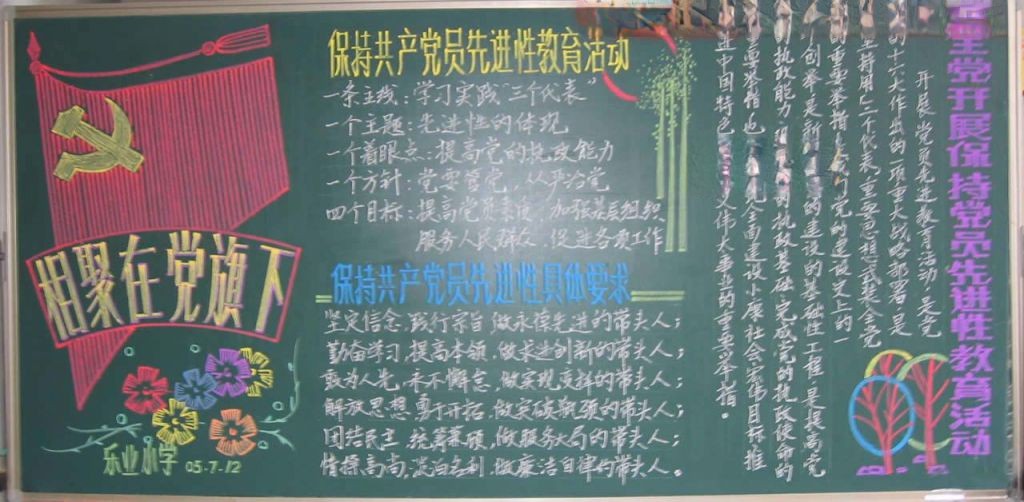 相聚在党旗下
乐业小学 05.7.12
保持共产党员先进性教育活动
一条主线:学习实践"三个代表"
一个主题:先进性的体现
一个着眼点:提高党的执政能力
一个方针:党要管党,从严治党
四个目标:提高党员素质,加强基层组织
服务人民群众,促进各项工作
保持共产党员先进性具体要求
坚定信念,践行宗旨,做永保先进的带头人;
勤奋学习,提高本领,做求进创新的带头人;
敢为人先,永不懈怠,做实现支持的带头人;
解放思想,勇于开拓,做突破瓶颈的带头人;
团结民主,统筹兼顾,做服务大局的带头人;
情操高尚,淡泊名利,做廉洁自律的带头人。
全党开展保持党员先进性教育活动
开展党员先进教育活动,是党
的十六大作出的一项重大战略部署,是
坚持用"三个代表"重要思想武装全党
的重要举措,党的建设史上的一
创举,是新的建设的基础性工程,是提高党
的执政能力,巩固执政基础,完成党的执政使命的
重要举措,也全面建设小康社会宏伟目标,推
进中国特色主义伟大事业的重要举措。